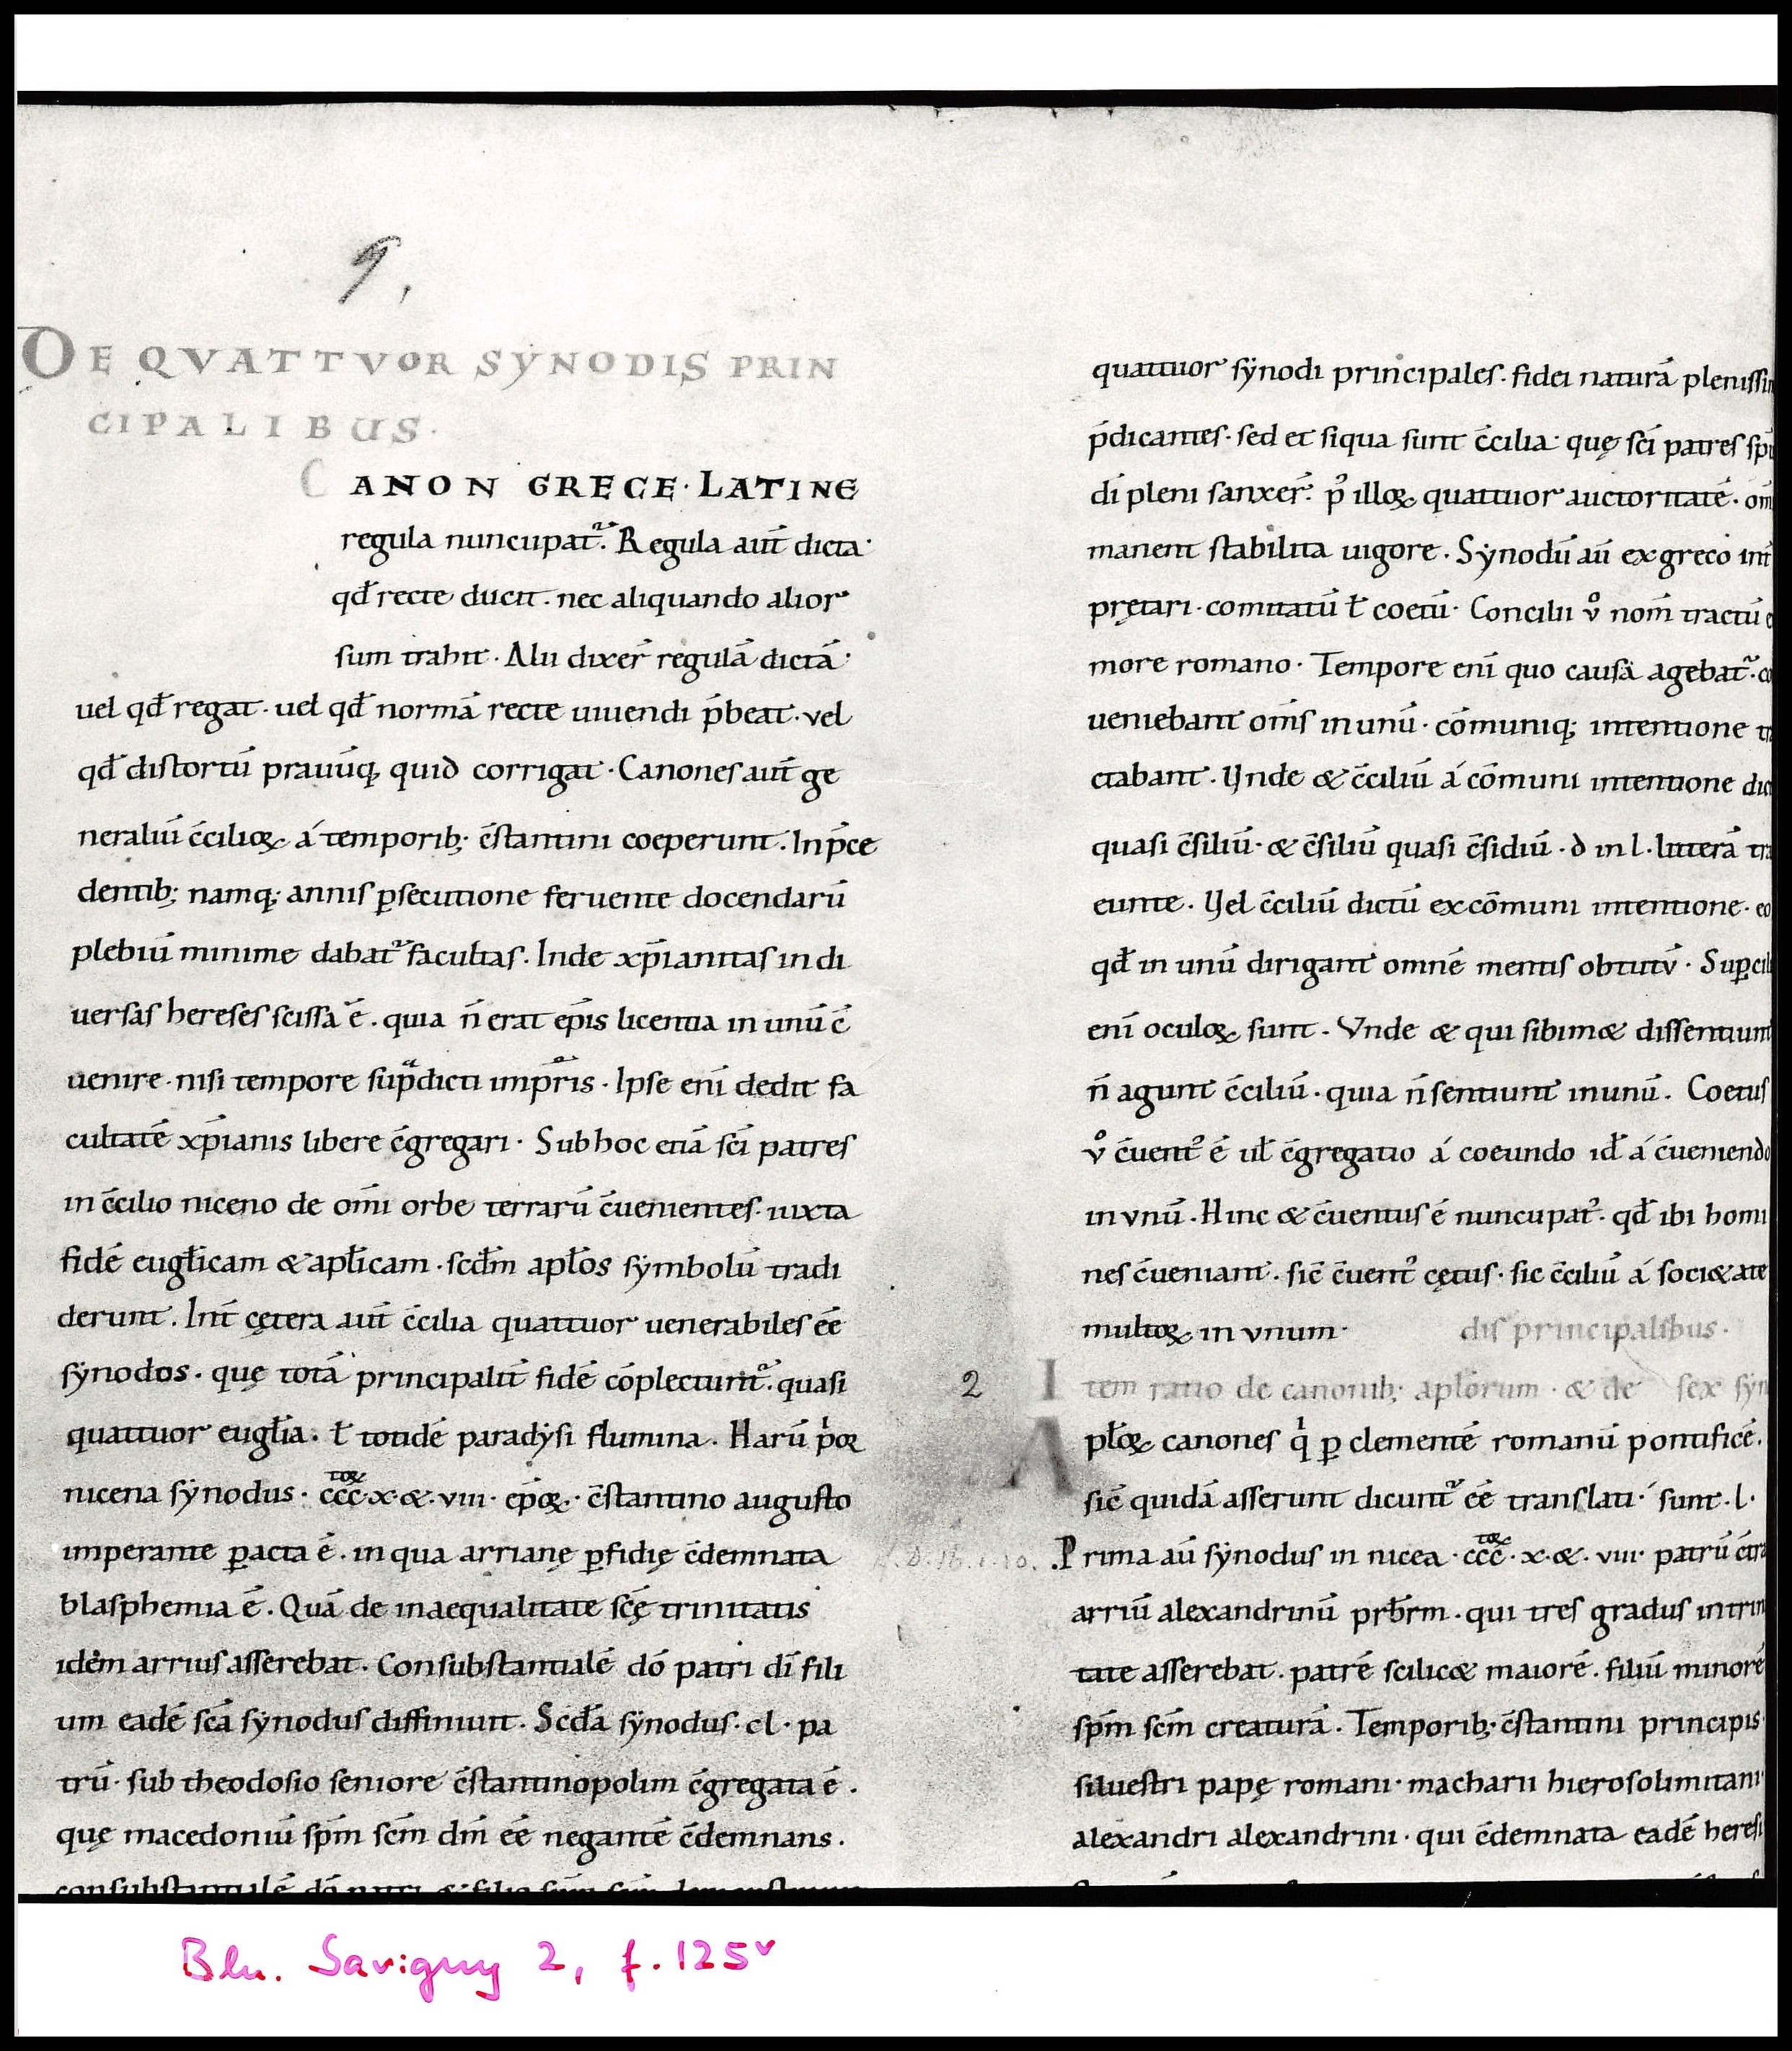 9,
DE QVATTVOR SYNODIS PRIN
CIPALIBUS·
CANON GRECE· LATINE
regula nuncupat᷑. Regula aut̄ dicta·
qđ recte ducit. nec aliquando alior
sum trahit. Alii dixer̄ regulā dictā·
uel qđ regat· uel qđ normā recte uiuendi p̄beat· vel
qđ distortū prauūq; quid corrigat· Canones aut̄ ge
neraliū c̄cilioꝝ á temporib; c̄stantini coeperunt. In p̄ce
dentib; namq; annis ꝑsecutione feruente docendarū
plebiū minime dabat᷑ facultas. Inde xp̄ianitas in di
uersas hereses scissa ē. quia n̄ erat ep̄is licentia in unū c̄
uenire· nisi tempore supͣdicti imp̄ris. Ipse eni̅ dedit fa
cultatē xp̄ianis libere c̄gregari· Sub hoc etiā sc̄i patres
in c̄cilio niceno de om̄i orbe terrarū c̄uenientes· iuxta
fidē eugl̄icam & apl̄icam· scđm apl̄os sẏmbolū tradi
derunt. Int̄ cętera aut̄ c̄cilia quattuor uenerabiles ēē
sẏnodos. quę totā principalit̄ fidē cōplectunt᷑. quasi
quattuor eugl̄ia. ł totidē paradẏsi flumina. Harū p̍oꝝ
nicena sẏnodus· ccc·toꝝ x·&·viii· ep̄oꝝ· c̄stantino augusto
imperante ꝑacta ē. in qua arrianę ꝑfidię c̄demnata
blasphemia ē. Quā de inaequalitate sc̄ę trinitatis
idem arrius asserebat. Consubstantialē dō patri dī fili
um eadē sc̄a sẏnodus diffiniuit. Scđa sẏnodus· cl· pa
trū· sub theodosio seniore c̄stantinopolim c̄gregata ē.
quę macedoniū sp̄m sc̄m dm̄ ēē negantē c̄demnans.
quattuor sẏnodi principales· fidei naturā plenissi
p̄dicantes· sed et siqua sunt c̄cilia· quę sc̄i patres sp̄u
di pleni sanxer̄· p᷒ illoꝝ quattuor auctoritatē· om̄
manent stabilita uigore. Sẏnodū aū ex greco int̄
pretari· comitatū ł coetū· Concilii v̊ nom̄ tractū e
more romano· Tempore eni̅ quo causa agebat᷑· co
ueniebant om̄s in unū· cōmuniq; intentione tr
ctabant. Vnde & c̄ciliū á cōmuni intentione dic
quasi c̄siliū· & c̄siliū quasi c̄sidiū· d in l· litterā tra
eunte. Vel c̄ciliū dictū ex cōmuni intentione· eo
qđ in unū dirigant omnē mentis obtutū· Suꝑcil
eni̅ oculoꝝ sunt. Vnde & qui sibim& dissentiunt
n̄ agunt c̄ciliū· quia n̄ sentiunt in unū. Coetus
v̊ c̄uent᷒ ē ul̄ c̄gregatio á coeundo id̄ á c̄ueniendo
in vnū. Hinc & c̄uentus ē nuncupat᷒· qđ ibi homi
nes c̄ueniant. sic̄ c̄uent᷒ cętus· sic c̄ciliū á soci&ate
multoꝝ in vnum·
dis principalibus·
2 Item ratio de canonib; apl̄orum· & de sex sẏn
Apl̄oꝝ canones q̍ ꝑ clementē romanū pontificē.
sic̄ quidā asserunt dicunt᷑ ēē translati· sunt· l·
Prima aū sẏnodus in nicea· ccc·toꝝ x·&· viii· patrū c̄tra
arriū alexandrinū prb̄rm· qui tres gradus in trin
tate asserebat. patrē scilic& maiorē. filiū minorē
sp̄m sc̄m creaturā. Temporib; c̄stantini principis·
siluestri papę romani· macharii hierosolimitani
alexandri alexandrini· qui c̄demnata eadē heresi
Bln. Savigny 2, f. 125v